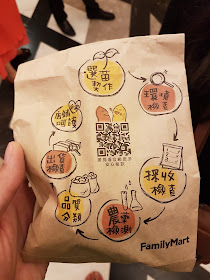 選苗
契作
環境
檢查
採收
檢查
農藥
檢測
品質
分類
出貨
檢查
店鋪
呵護
FamilyMart